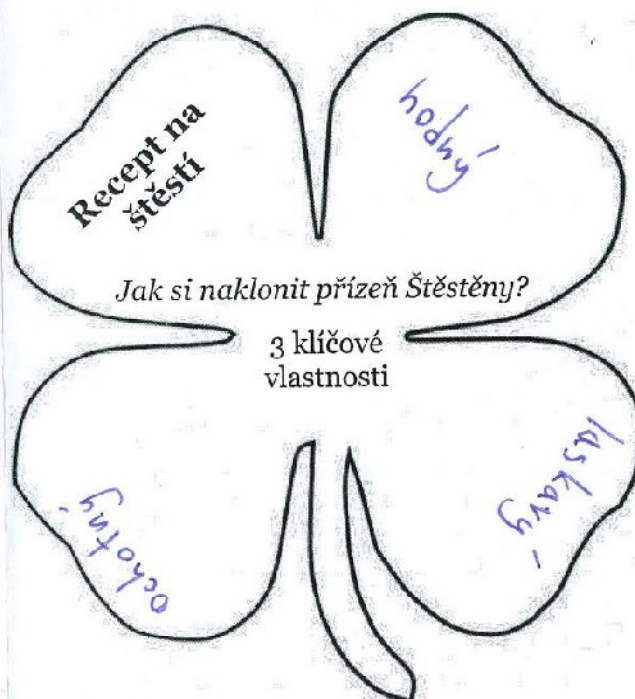 Recept na
štěstí
hodný
Jak si naklonit přízeň Štěstěny?
3 klíčové
vlastnosti
ochotný
laskavý